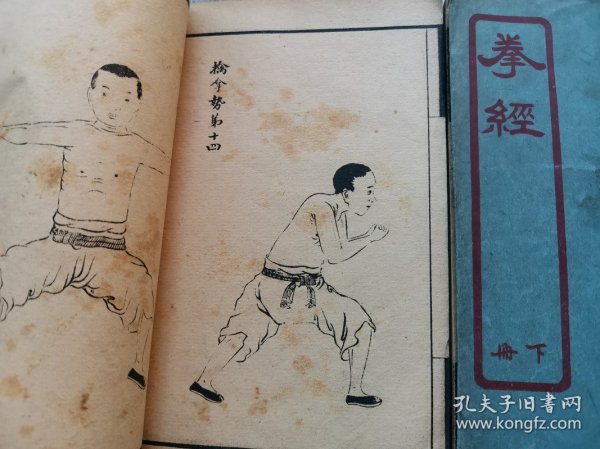 擒拿勢第十四
拳經
下冊
孔夫子旧书网
www.kongfz.com